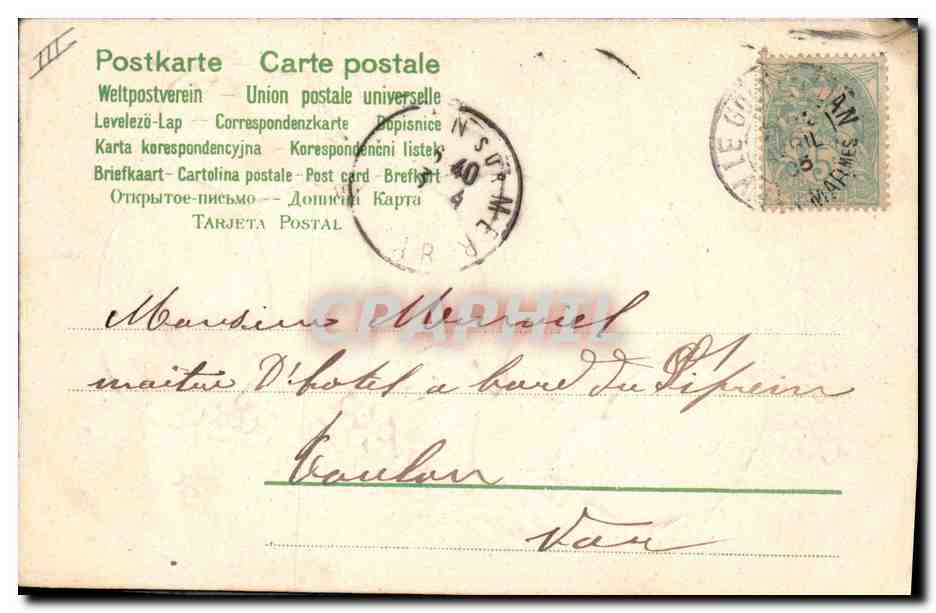 III
Postkarte – Carte postale
Weltpostverein – Union postale universelle
Levelezö-Lap – Correspondenzkarte – Dopisnice
Karta korespondencyjna – Korespondenční listek
Briefkaart – Cartolina postale – Post card – Brefkort
Открытое-письмо – Дописна Карта
Tarjeta Postal
N SUR MER
40
4
LE GO
AN
MARMES
CPAPHIL
Monsieur
maitre D'hotel a bord du
Toulon
Var